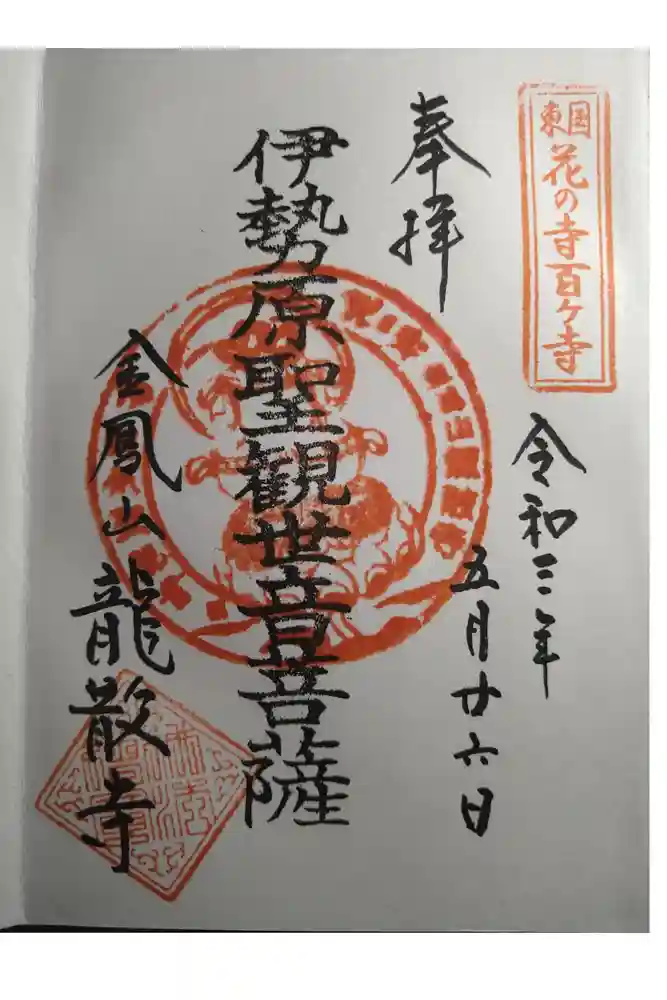 東国
花の寺百ケ寺
奉拝
令和三年
五月廿六日
伊勢原聖観世音菩薩
金鳳山龍散寺